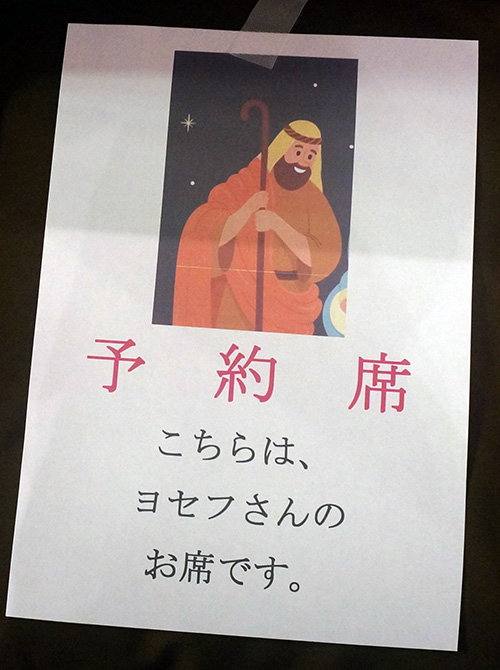 予約席
こちらは、
ヨセフさんの
お席です。